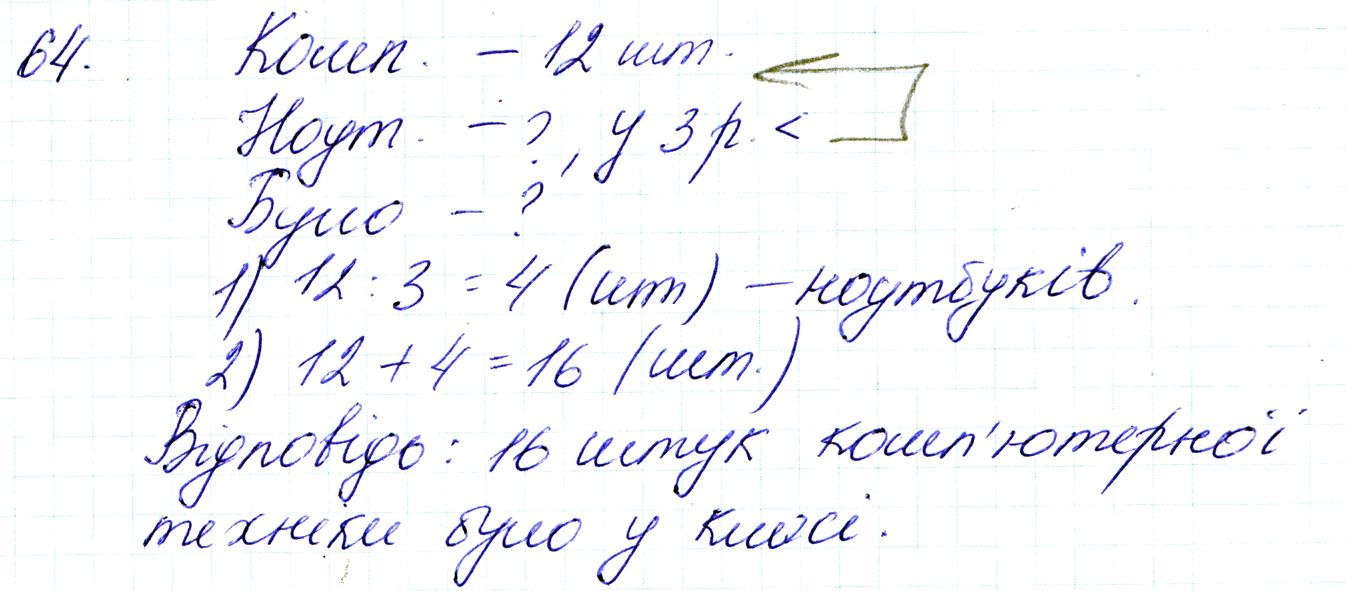 64. Комп. – 12 шт.
Ноут. – ?, у 3 р. <
Було – ?
1) 12 : 3 = 4 (шт) – ноутбуків.
2) 12 + 4 = 16 (шт.)
Відповідь: 16 штук комп'ютерної
техніки було у класі.